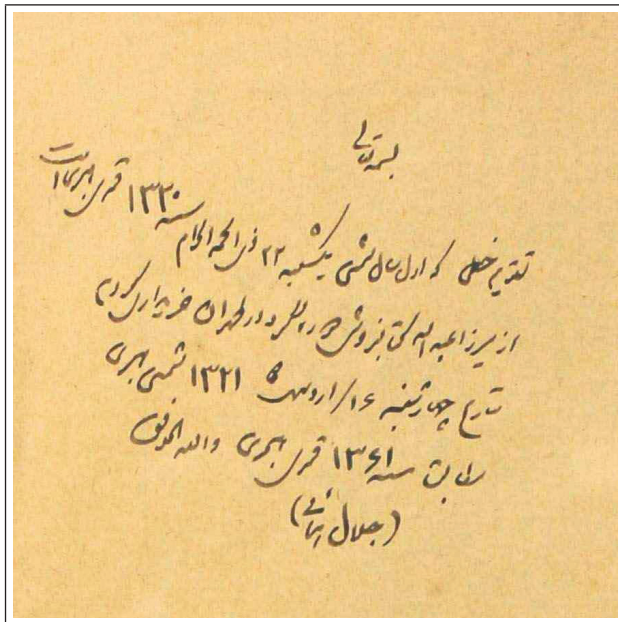 بسمه تعالی
تقویم خطی که اول سال شمسی یکشنبه ۲۲ ذی الحجة الحرام سنه ۱۳۳۰ قمری هجری است
از میرزا عبدالله کتابفروش در طهران خریداری کردم
تاریخ چهارشنبه ۱۶ / اردیبهشت ۱۳۲۱ شمسی هجری
مطابق سنه ۱۳۶۱ قمری هجری والله الموفق
(جلال)